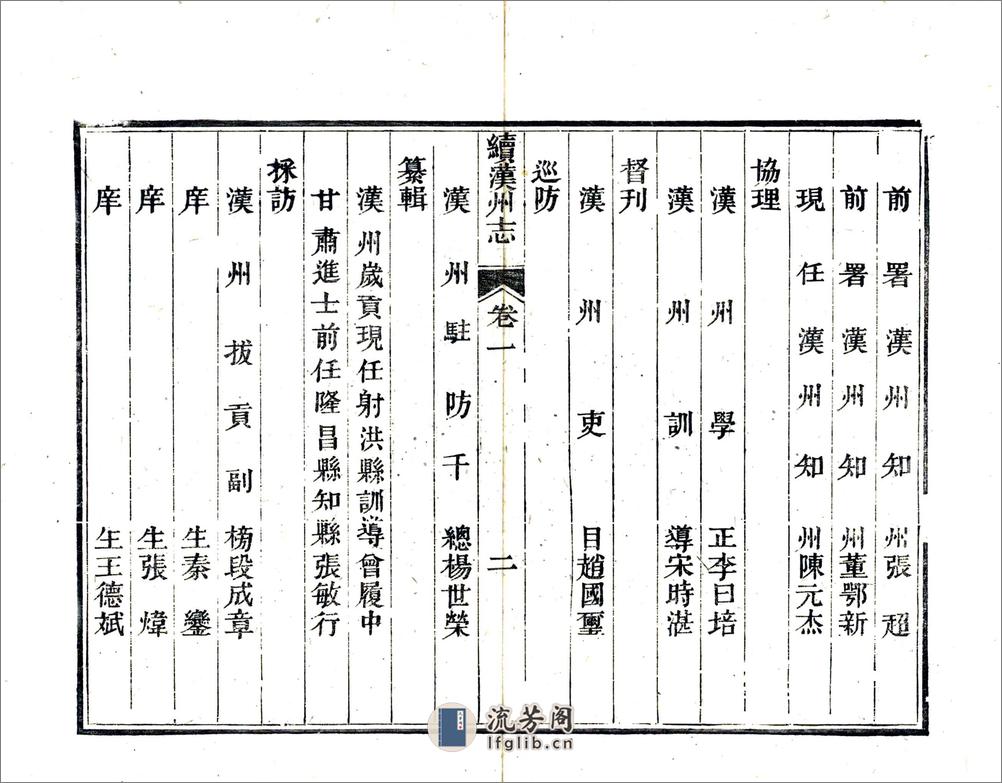 前署漢州知州張超
前署漢州知州董鄂新
現任漢州知州陳元杰
協理
漢州學正李曰培
漢州訓導宋時湛
督刊
漢州吏目趙國璽
巡防
續漢州志 卷一 二
漢州駐防千總楊世榮
纂輯
漢州歲貢現任射洪縣訓導曾履中
甘肅進士前任隆昌縣知縣張敏行
採訪
漢州拔貢副榜段成章
庠生秦鑾
庠生張煒
庠生王德斌
流芳阁
lfglib.cn